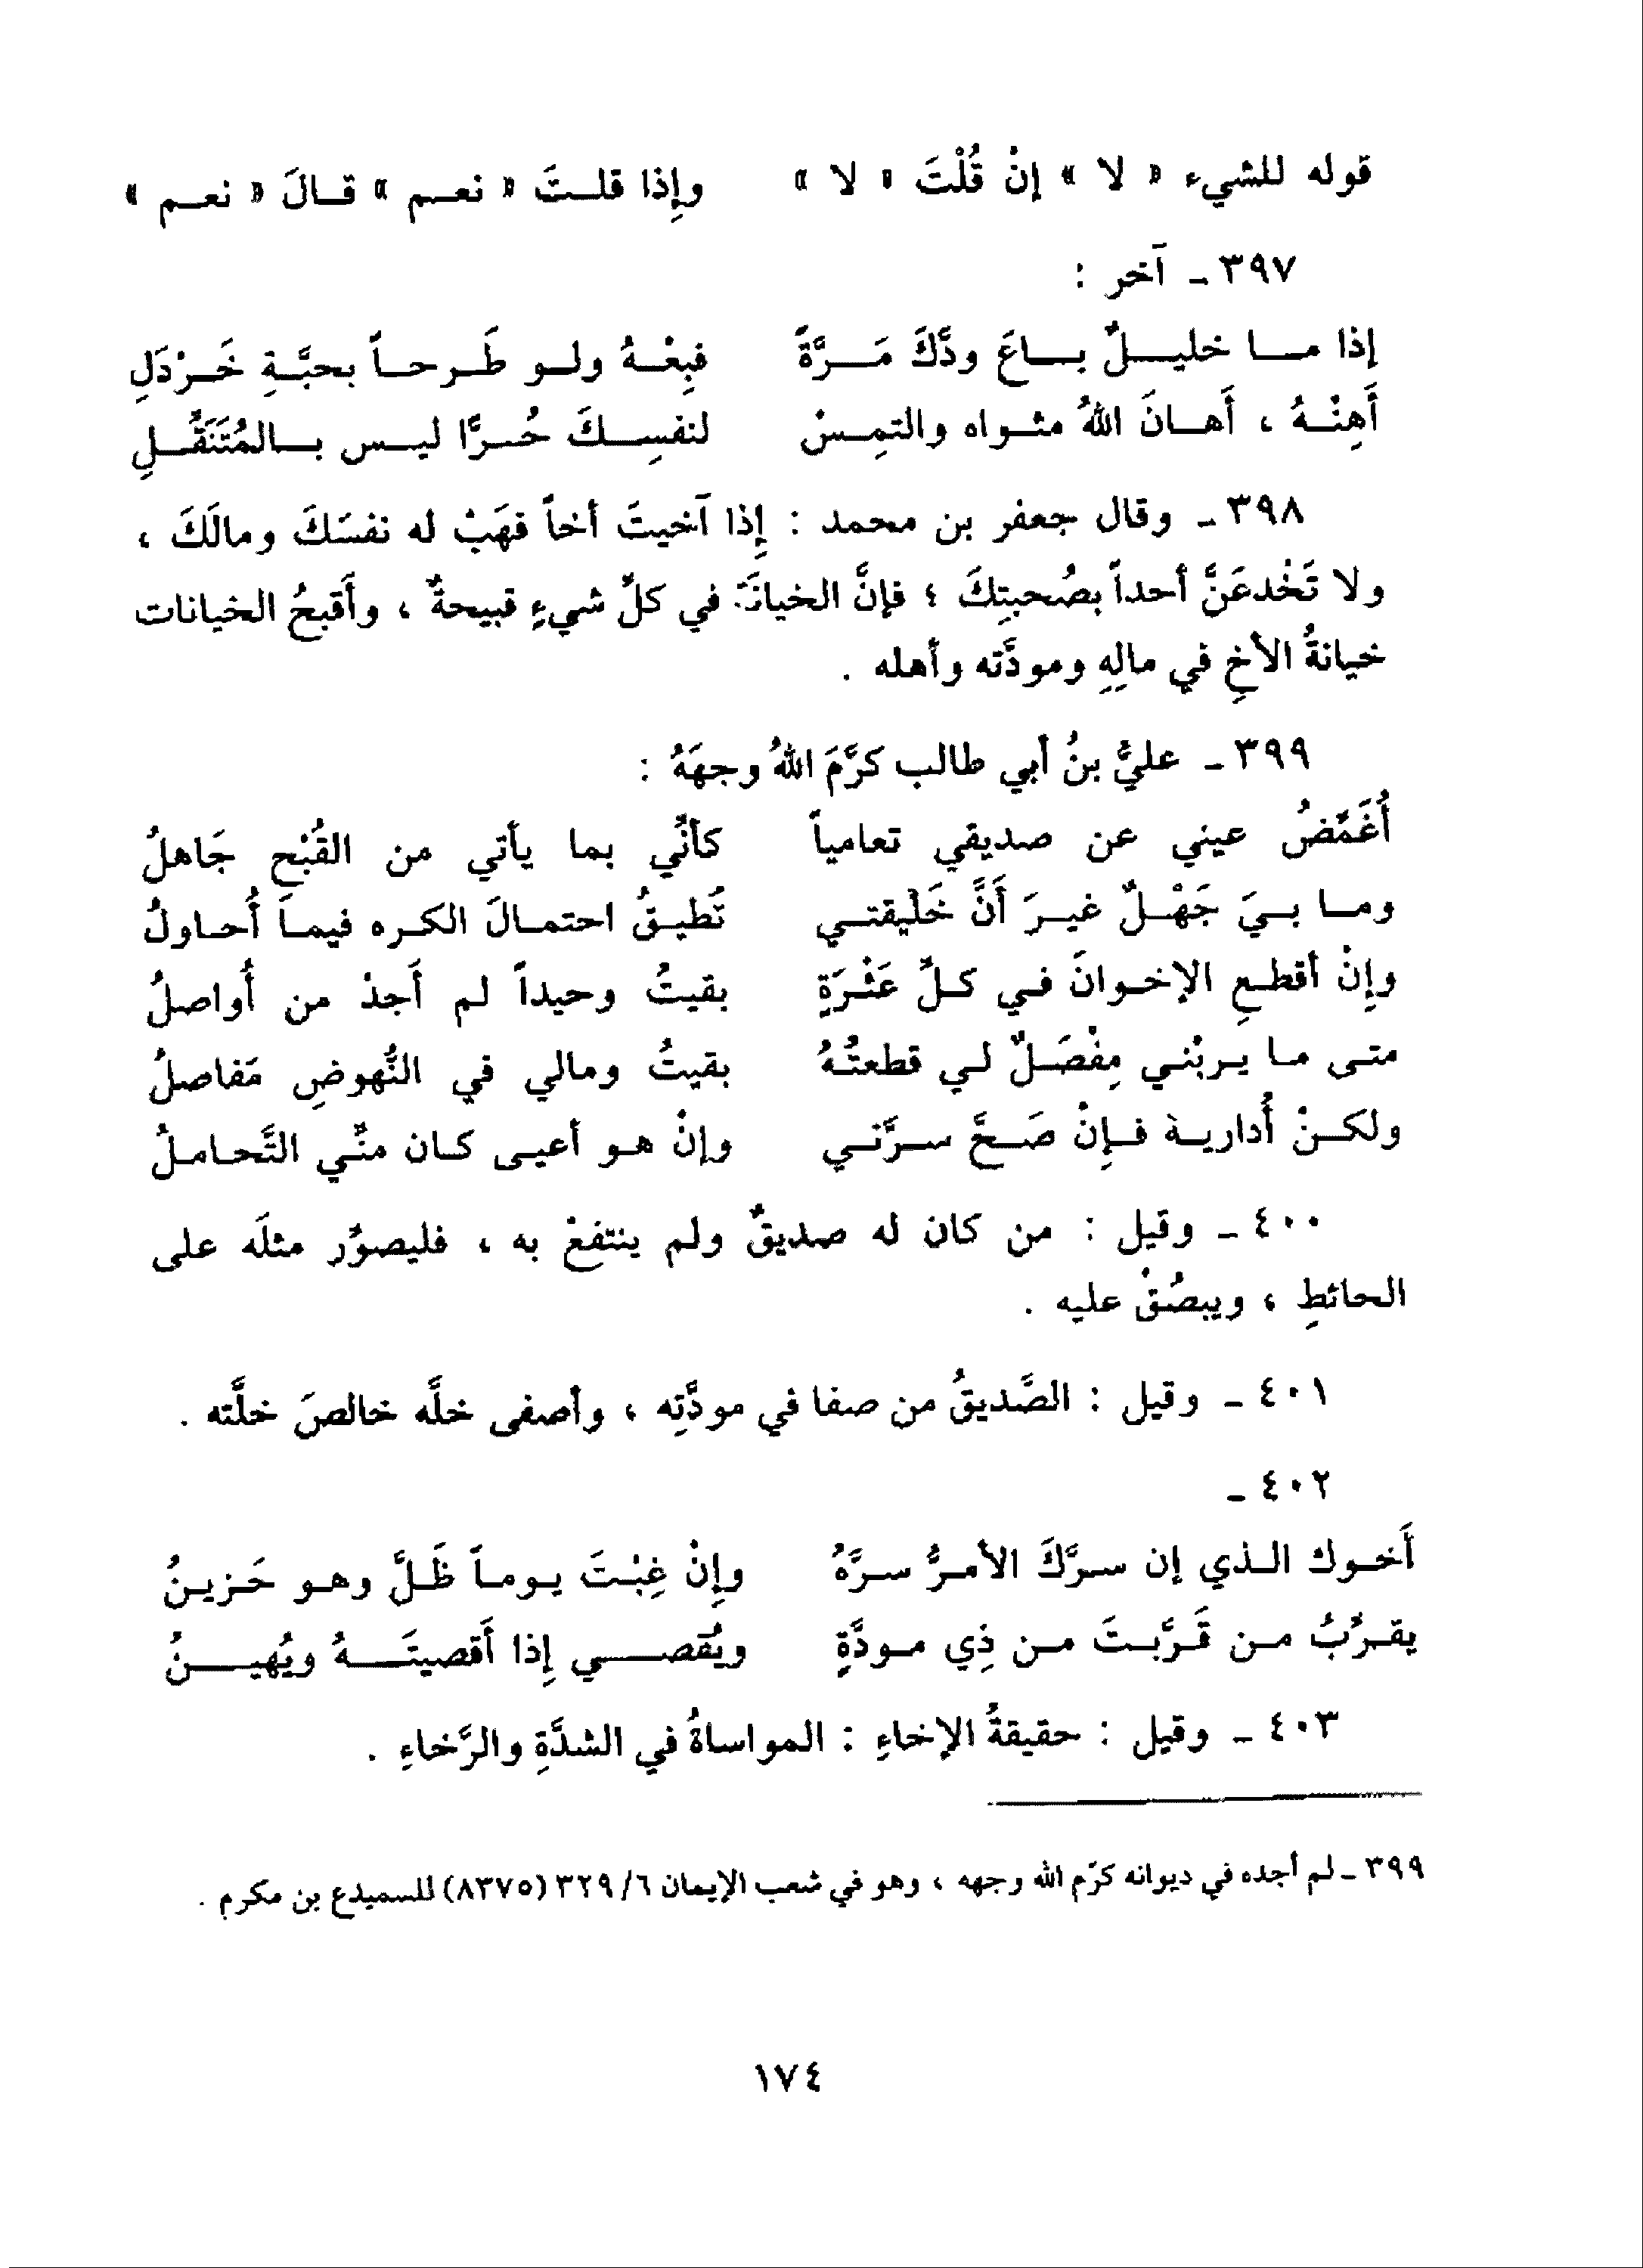 قوله للشيء « لا » إنْ قُلْتَ « لا » وإِذا قلــتَ « نعــم » قــالَ « نعــم »
٣٩٧ ـ آخر :
إذا مــا خليــلٌ بــاعَ ودَّكَ مَــرَّةً فبِعْــهُ ولــو طَــرحــاً بحبَّــةِ خَــرْدَلِ
أَهِنْــهُ ، أَهــانَ اللهُ مثــواه والتمِــسْ لنفسِــكَ حُــرًّا ليــس بــالمُتَنَقِّــلِ
٣٩٨ ـ وقال جعفر بن محمد : إِذا آخيتَ أخاً فهَبْ له نفسَكَ ومالَكَ ،
ولا تَخْدعَنَّ أحداً بصُحبتِكَ ؛ فإنَّ الخيانَةَ في كلِّ شيءٍ قبيحةٌ ، وأَقبحُ الخيانات
خيانةُ الأخِ في مالِهِ ومودَّته وأهله .
٣٩٩ ـ عليُّ بنُ أبي طالب كرَّمَ اللهُ وجهَهُ :
أُغَمِّضُ عيني عن صديقي تعامياً كأنِّي بما يأتي من القُبْحِ جَاهلُ
ومــا بــيَ جَهْــلٌ غيــرَ أَنَّ خَلْيقتــي تُطيــقُ احتمــالَ الكــره فيمــا أُحــاولُ
وإنْ أقطــعِ الإخــوانَ فــي كــلِّ عَثْرَةٍ بقيتُ وحيداً لم أَجدْ من أُواصلُ
متــى مــا يــربْنــي مِفْصَــلٌ لــي قطعتُــهُ بقيتُ ومالي في النُّهوضِ مَفاصلُ
ولكــنْ أُداريــة فــإِنْ صَــحَّ ســرَّنــي وإنْ هــو أعيــى كــان منِّــي التَّحــامــلُ
٤٠٠ ـ وقيل : من كان له صديقٌ ولم ينتفعْ به ، فليصوِّر مثلَه على
الحائطِ ، ويبصُقْ عليه .
٤٠١ ـ وقيل : الصَّديقُ من صفا في مودَّتِه ، وأصفى خلَّه خالصَ خلَّته .
٤٠٢ ـ
أَخــوك الــذي إن ســرَّكَ الأمــرُّ ســرَّهُ وإِنْ غِبْــتَ يــومــاً ظَــلَّ وهــو حَــزيــنُ
يقــرِّبُ مــن قَــرَّبــتَ مــن ذِي مــودَّةٍ ويُقصــي إِذا أَقصيتَــهُ ويُهيــنُ
٤٠٣ ـ وقيل : حقيقةُ الإخاءِ : المواساةُ في الشدَّةِ والرَّخاءِ .
٣٩٩ ـ لم أجده في ديوانه كرّم الله وجهه ، وهو في شعب الإيمان ٦/ ٣٢٩ (٨٣٧٥) للسميدع بن مكرم .
١٧٤